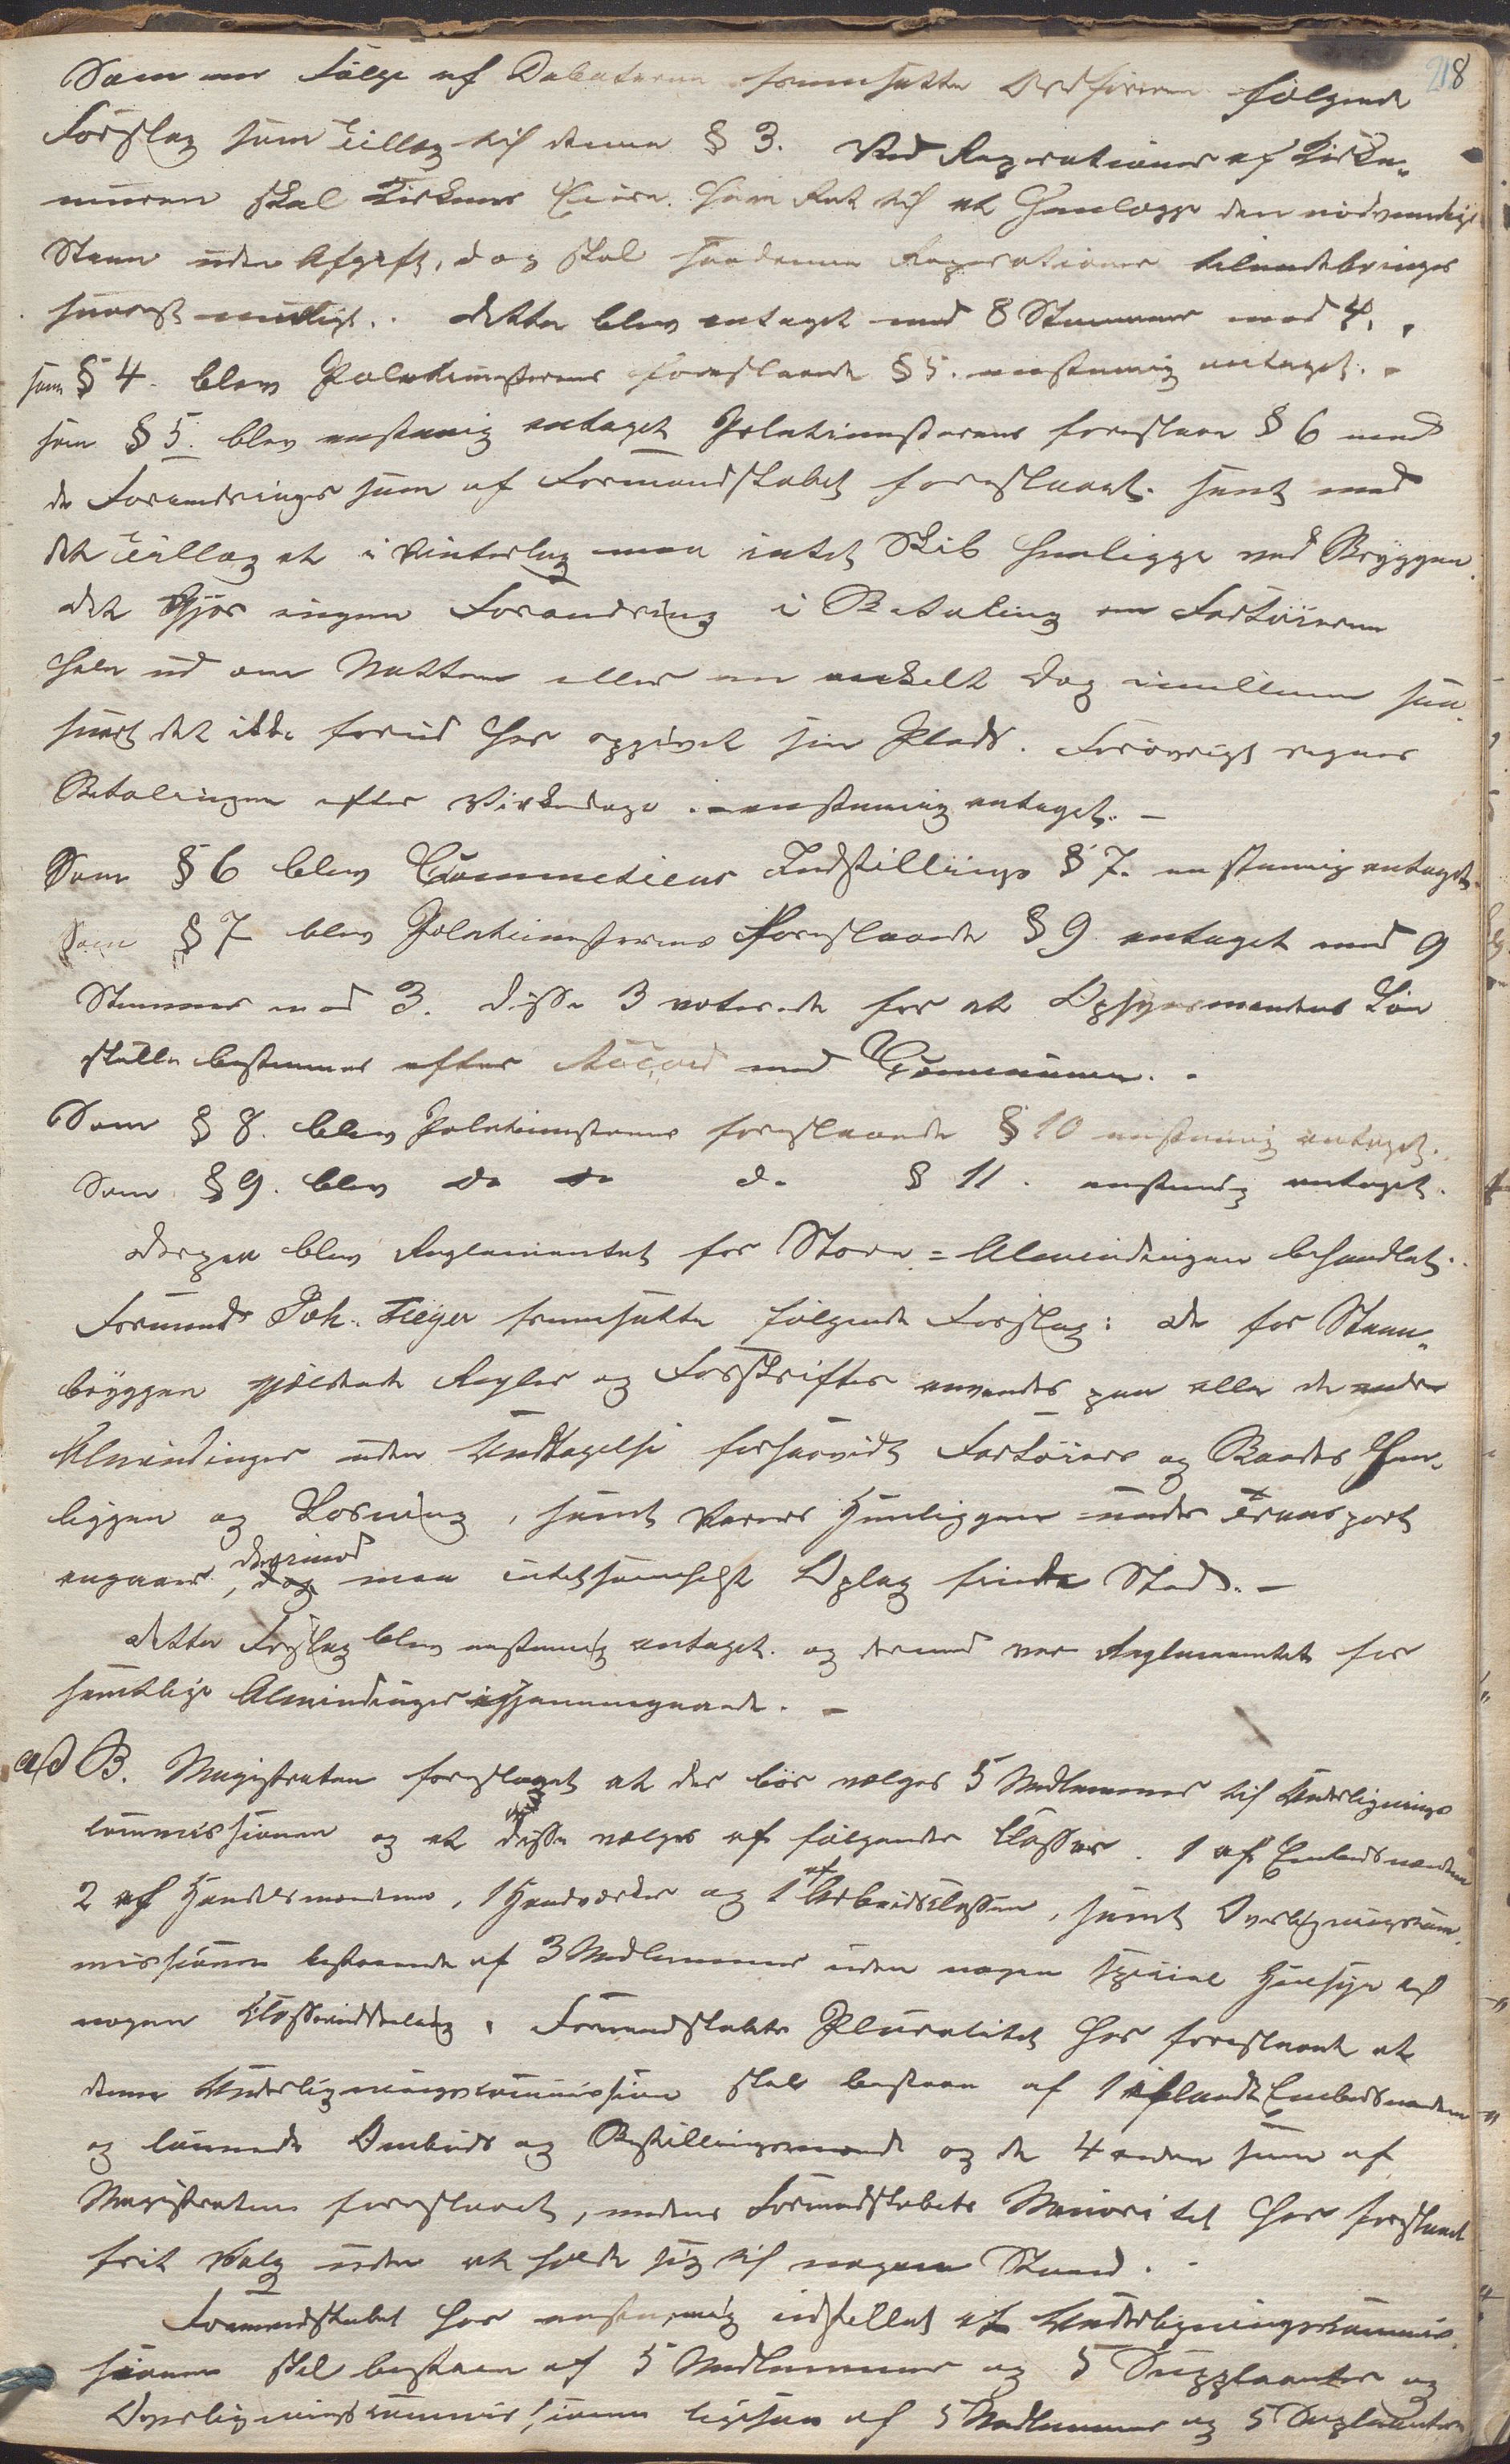 218
Som en Følge af Debatterne fremsatte Ordføreren følgende
Forslag som Tillæg til denne § 3. Ved Reparationer af Kirke„
muren skal Kirkens Eiere have Ret til at Henlægge den nødvendige
Steen uden Afgift, dog skal saadanne Reparationer tilendebringes
snarest muligt. Dette blev antaget med 8 Stemmer mod 4.
som § 4. blev Politimesterens foreslaaede § 5. enstemig antaget. -
som § 5. blev enstemig antaget Politimesterens foreslaaede § 6 med
de Forandringer som af Formandskabet foreslaaet. samt med
det Tillæg at i Vinterlag maa intet Skib henligge ved Bryggen.
det Gjør ingen Forandring i Betaling om Fartøierne
hale ud om Natten eller en enkelt Dag imellem saa„
snart det ikke forud har opgivet sin Plads. Forøvrigt regnes
Betalingen efter Virkedage. - enstemig antaget. -
Som § 6 blev Committeens Indstillings § 7. enstemig antaget.
Som § 7 blev Politimesterens Foreslaaede § 9 antaget med 9
Stemmer mod 3. Disse 3 voterede for at Opsynsmandens Løn
skulle bestemmes efter Accord med Communen. -
Som § 8. blev Politimesterens foreslaaede § 10 enstemig antaget.
Som § 9. blev do do do § 11. enstemig antaget.
Derpaa blev Reglementet for Store=Almindingen behandlet.
Formand Joh. Fleger fremsatte følgende Forslag: De for Steen„
bryggen gjældende Regler og Forskrifter anvendes paa alle de andre
Almindinger uden Undtagelse forsaavidt Fartøiers og Baades Hen„
liggen og Losning, samt Varers Henliggen under Transport
angaaer, dog derimod maa intetsomhelst Oplag finde Sted. -
Dette Forslag blev enstemig antaget. og dermed var Reglementet for
samtlige Almindinger igjennemgaaede. -
ad B. Magistraten foreslaget at der bør vælges 5 Medlemmer til Underlignings
commissionen og at disse vælges af følgende Classer. 1 af Embedsmændene
2 af Handelsmændene, 1 Haandværker og 1 af Arbeidsclassen, samt Overligningscom„
missionen bestaaende af 3 Medlemmer uden nogen special Hensyn til
nogen Classeinddeling. Formandskabets Pluralitet har foreslaaet at
denne Underligningscommission skal bestaae af 1 iblandt Embedsmændene
og lønnede Ombuds og Bestillingsmænd og de 4 anden som af
Magistraten foreslaaet, medens Formandskabets Minoritet har foreslaaet
frit Valg uden at holde sig til nogen Stand. -
Formandskabet har enstemig indstillet at Underligningscommis„
sionen skal bestaae af 5 Medlemmer og 5 Suppleanter og
Overligningscommissionen ligesaa af 5 Medlemmer og 5 Supleanter